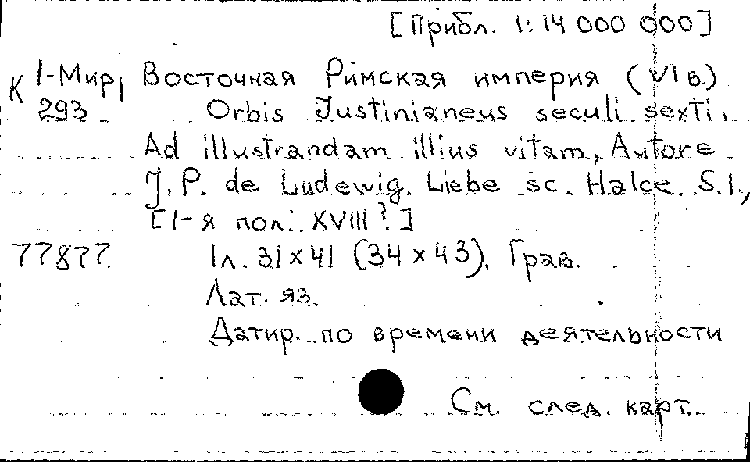 [Прибл. 1:14 000 000]
К 1-Мир, Восточная Римская империя (VI в.)
293 Orbis Justinianeus seculi sexti,
Ad illustrandam illius vitam, Autore
J. P. de Ludewig. Liebe sc. Halce. S.l.,
[1-я пол. XVIII?]
77877 1л. 31×41 (34×43). Грав.
Лат. яз.
Датир. по времени деятельности
См. след. карт.